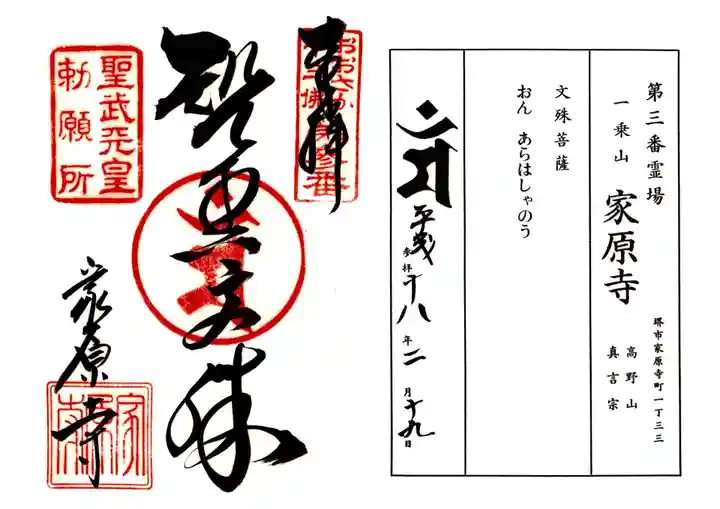 奉拝
おおさか
十三佛
第三番
智恵文殊
聖武天皇
勅願所
家原寺
家原寺
第三番霊場
一乗山 家原寺
高野山
真言宗
堺市家原寺町一丁三三
文殊菩薩
おん あらはしゃのう
平成十八年二月十九日
参拝